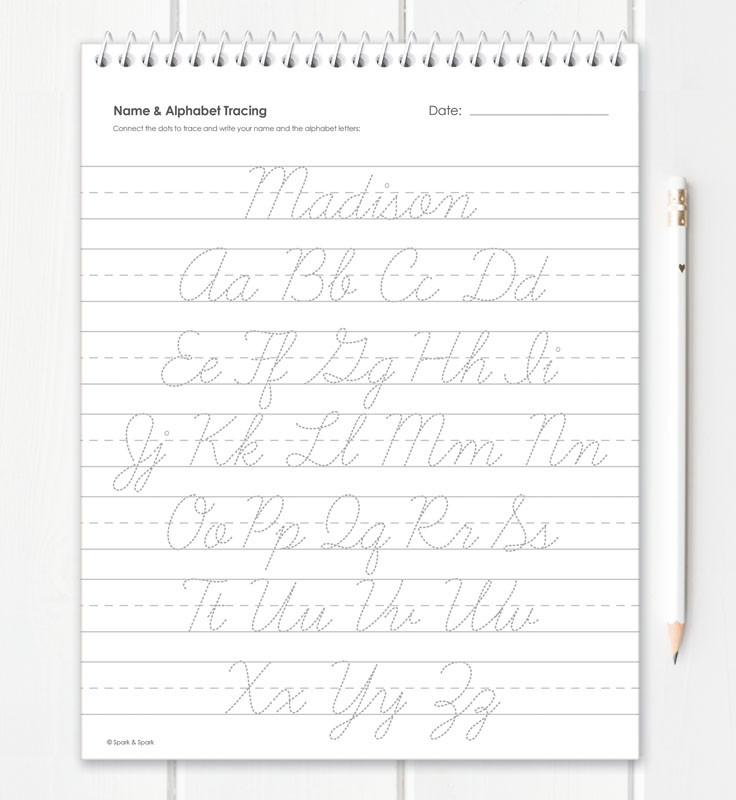 Name & Alphabet Tracing
Date:
Connect the dots to trace and write your name and the alphabet letters:
Madison
Aa Bb Cc Dd
Ee Ff Gg Hh Ii
Jj Kk Ll Mm Nn
Oo Pp Qq Rr Ss
Tt Uu Vv Ww
Xx Yy Zz
© Spark & Spark